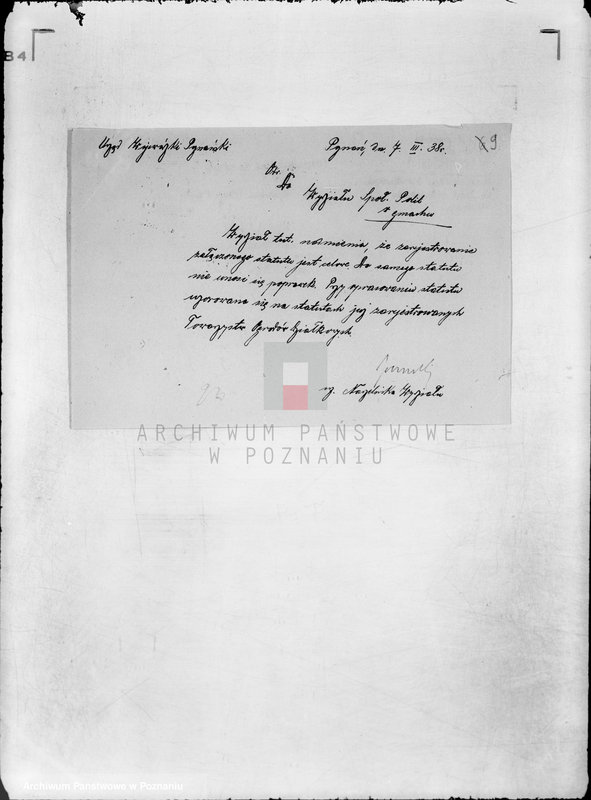 B4
Urząd Wojewódzki Poznański
Poznań, dn. 7. III. 38r.
9
Do
Wydziału Społ. Polit
w gmachu
Wydział tut. nadmienia, że zarejestrowanie
załączonego statutu jest celowe. Do samego statutu
nie wnosi się poprawek. Przy opracowaniu statutu
wzorowano się na statutach już zarejestrowanych
Towarzystw Ogrodów Działkowych.
wz. Naczelnika Wydziału
ARCHIWUM PAŃSTWOWE
W POZNANIU
Archiwum Państwowe w Poznaniu